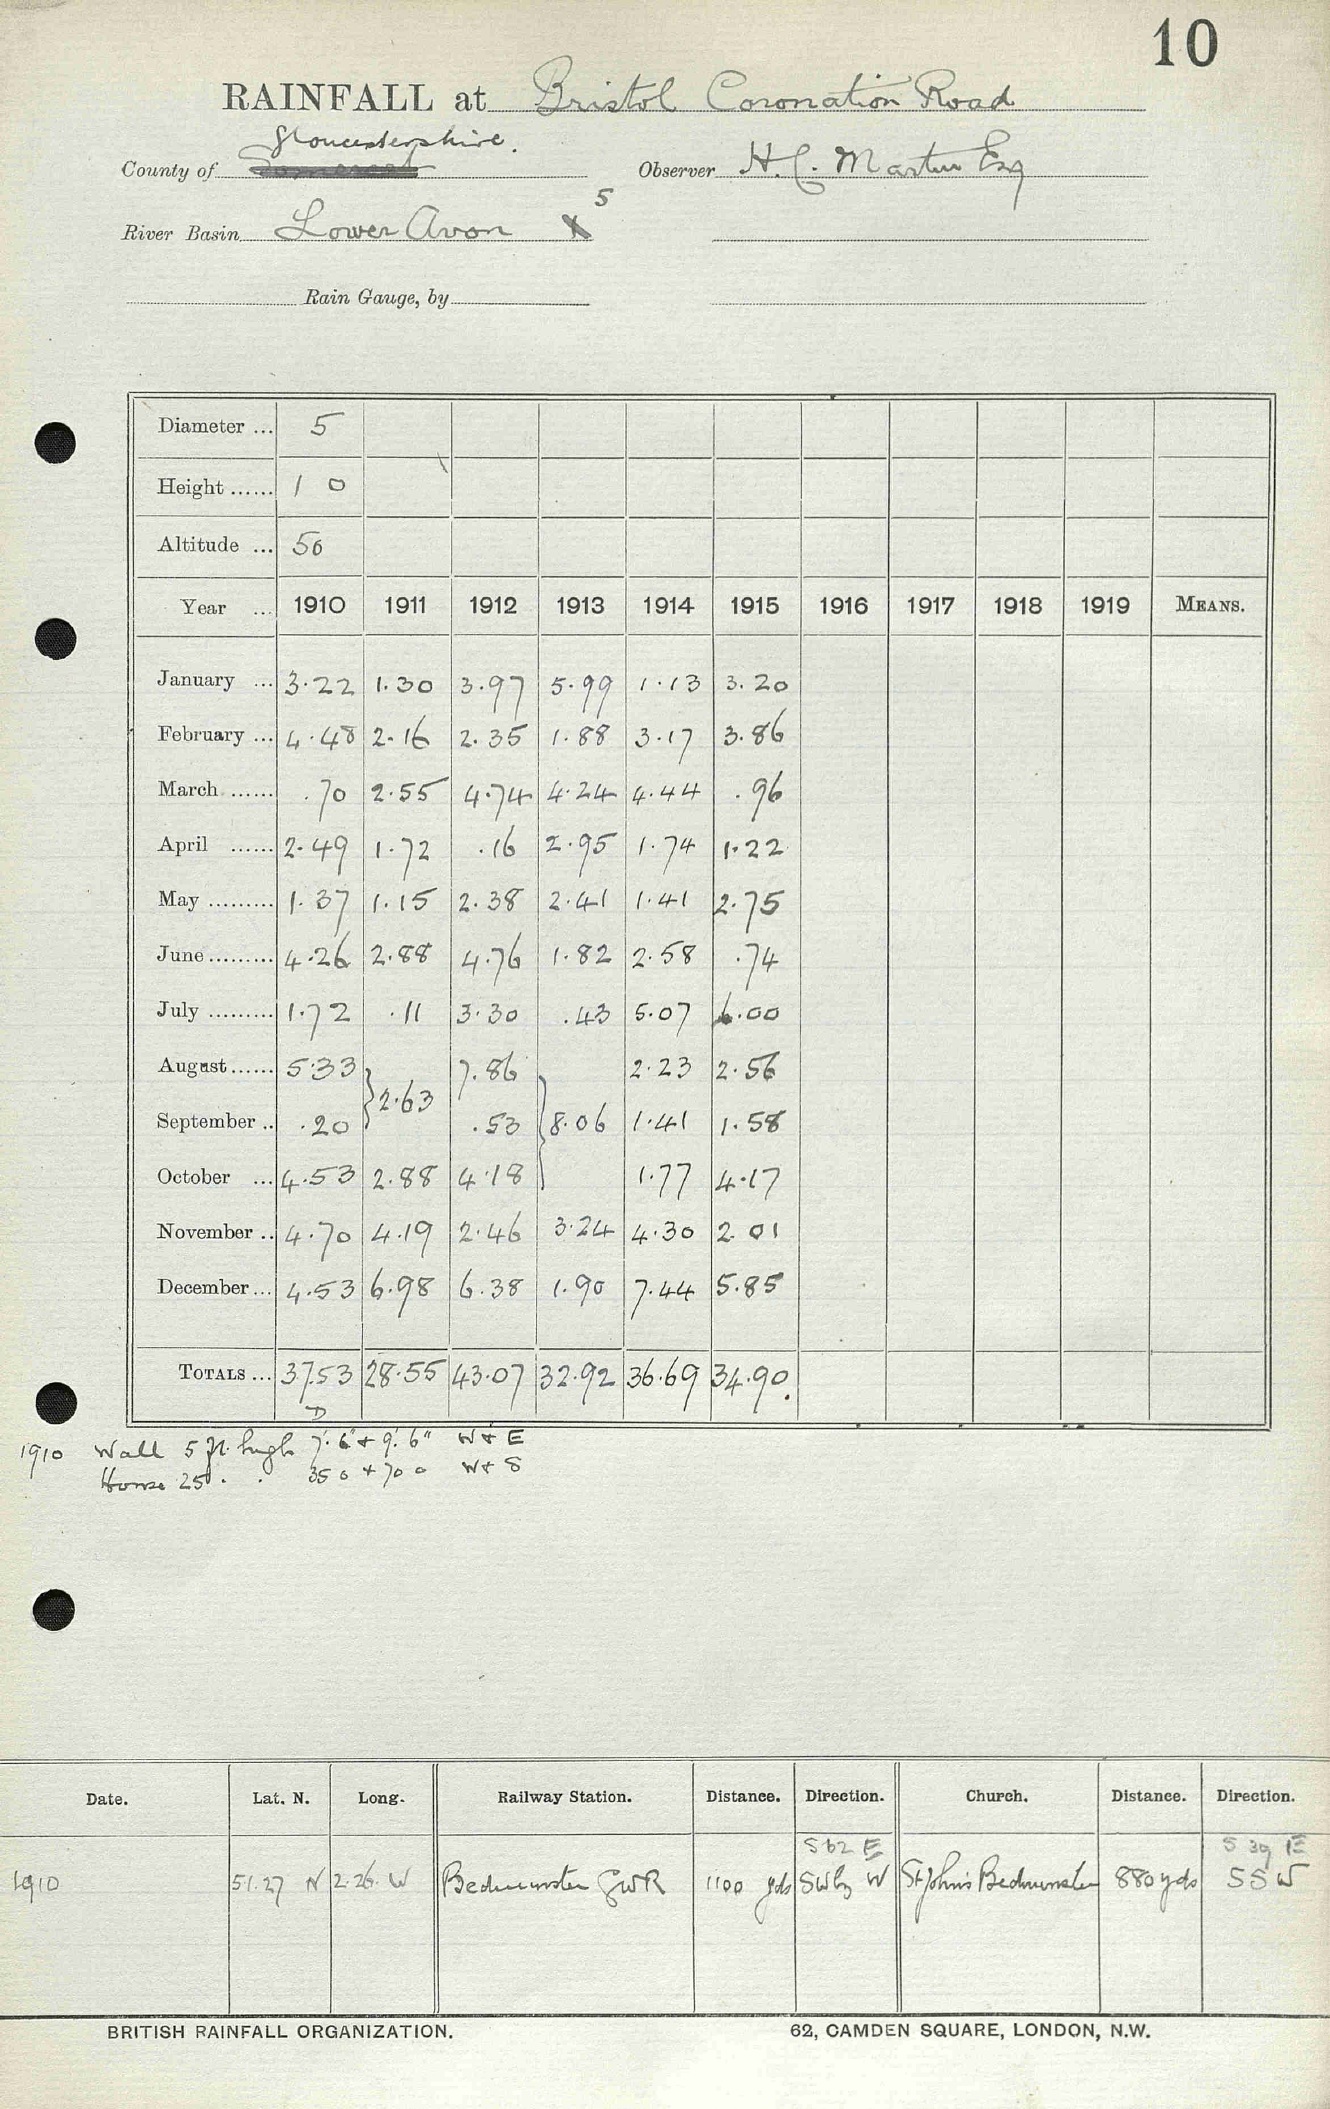 10
RAINFALL at Bristol Coronation Road
Gloucestershire.
County of Somerset Observer H. C. Martin Esq
5
River Basin Lower Avon
Rain Gauge, by
Diameter ... 5
Height ...... 1 0
Altitude ... 50
Year ... 1910 1911 1912 1913 1914 1915 1916 1917 1918 1919 MEANS.
January ... 3.22 1.30 3.97 5.99 1.13 3.20
February ... 4.48 2.16 2.35 1.88 3.17 3.86
March ...... .70 2.55 4.74 4.24 4.44 .96
April ...... 2.49 1.72 .16 2.95 1.74 1.22
May ......... 1.37 1.15 2.38 2.41 1.41 2.75
June ......... 4.26 2.88 4.76 1.82 2.58 .74
July ......... 1.72 .11 3.30 .43 5.07 6.00
August ...... 5.33 7.86 2.23 2.56
2.63
September .. .20 .53 8.06 1.41 1.58
October ... 4.53 2.88 4.18 1.77 4.17
November .. 4.70 4.19 2.46 3.24 4.30 2.01
December ... 4.53 6.98 6.38 1.90 7.44 5.85
TOTALS ... 37.53 28.55 43.07 32.92 36.69 34.90.
1910 Wall 5 ft. high 7' 6" + 9' 6" W + E
House 25 " " 35 0 + 70 0 W + S
Date. Lat. N. Long. Railway Station. Distance. Direction. Church. Distance. Direction.
S 62 E S 39 E
1910 51.27 N 2.26. W Bedminster GWR 1100 yds SW by W St John's Bedminster 880 yds SSW
BRITISH RAINFALL ORGANIZATION. 62, CAMDEN SQUARE, LONDON, N.W.